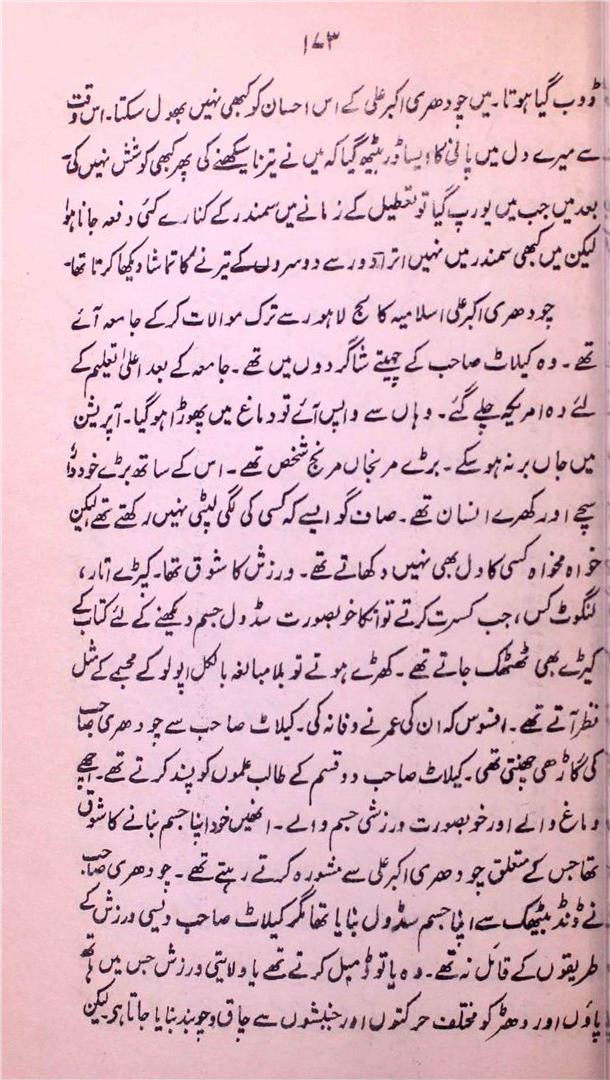 ۱۷۳
ڈوب گیا ہوتا۔ میں چودھری اکبر علی کے اس احسان کو کبھی نہیں بھول سکتا۔ اس وقت
سے میرے دل میں پانی کا ایسا ڈر بیٹھ گیا کہ میں نے تیرنا سیکھنے کی پھر کبھی کوشش نہیں کی۔
بعد میں جب میں یورپ گیا تو تعطیل کے زمانے میں سمندر کے کنارے کئی دفعہ جانا ہوا
لیکن میں کبھی سمندر میں نہیں اترا۔ دور سے دوسروں کے تیرنے کا تماشا دیکھا کرتا تھا۔
چودھری اکبر علی اسلامیہ کالج لاہور سے ترک موالات کرکے جامعہ آئے
تھے۔ وہ کیلاٹ صاحب کے چہیتے شاگردوں میں تھے۔ جامعہ کے بعد اعلیٰ تعلیم کے
لئے وہ امریکہ چلے گئے۔ وہاں سے واپس آئے تو دماغ میں پھوڑا ہوگیا۔ آپریشن
میں جاں بر نہ ہوسکے۔ بڑے مرنجاں مرنج شخص تھے۔ اس کے ساتھ بڑے خوددار
سچے اور کھرے انسان تھے۔ صاف گو ایسے کہ کسی کی لگی لپٹی نہیں رکھتے تھے لیکن
خواہ مخواہ کسی کا دل بھی نہیں دکھاتے تھے۔ ورزش کا شوق تھا۔ کپڑے اتار،
لنگوٹ کس، جب کسرت کرتے تو انکا خوبصورت سڈول جسم دیکھنے کے لئے کتاب کے
کیڑے بھی ٹھٹھک جاتے تھے۔ کھڑے ہوتے تو بلا مبالغہ بالکل اپولو کے مجسمے کے مثل
نظر آتے تھے۔ افسوس کہ ان کی عمر نے وفا نہ کی۔ کیلاٹ صاحب سے چودھری صاحب
کی گاڑھی چھنتی تھی۔ کیلاٹ صاحب دو قسم کے طالب علموں کو پسند کرتے تھے۔ اچھے
دماغ والے اور خوبصورت ورزشی جسم والے۔ انھیں خود اپنا جسم بنانے کا شوق
تھا جس کے متعلق چودھری اکبر علی سے مشورہ کرتے رہتے تھے۔ چودھری صاحب
نے ڈنڈ بیٹھک سے اپنا جسم سڈول بنایا تھا مگر کیلاٹ صاحب دیسی ورزش کے
طریقوں کے قائل نہ تھے۔ وہ یا تو ڈمبل کرتے تھے یا ولایتی ورزش جس میں ہاتھ
پاؤں اور دھڑ کو مختلف حرکتوں اور جنبشوں سے چاق و چوبند بنایا جاتا ہی لیکن